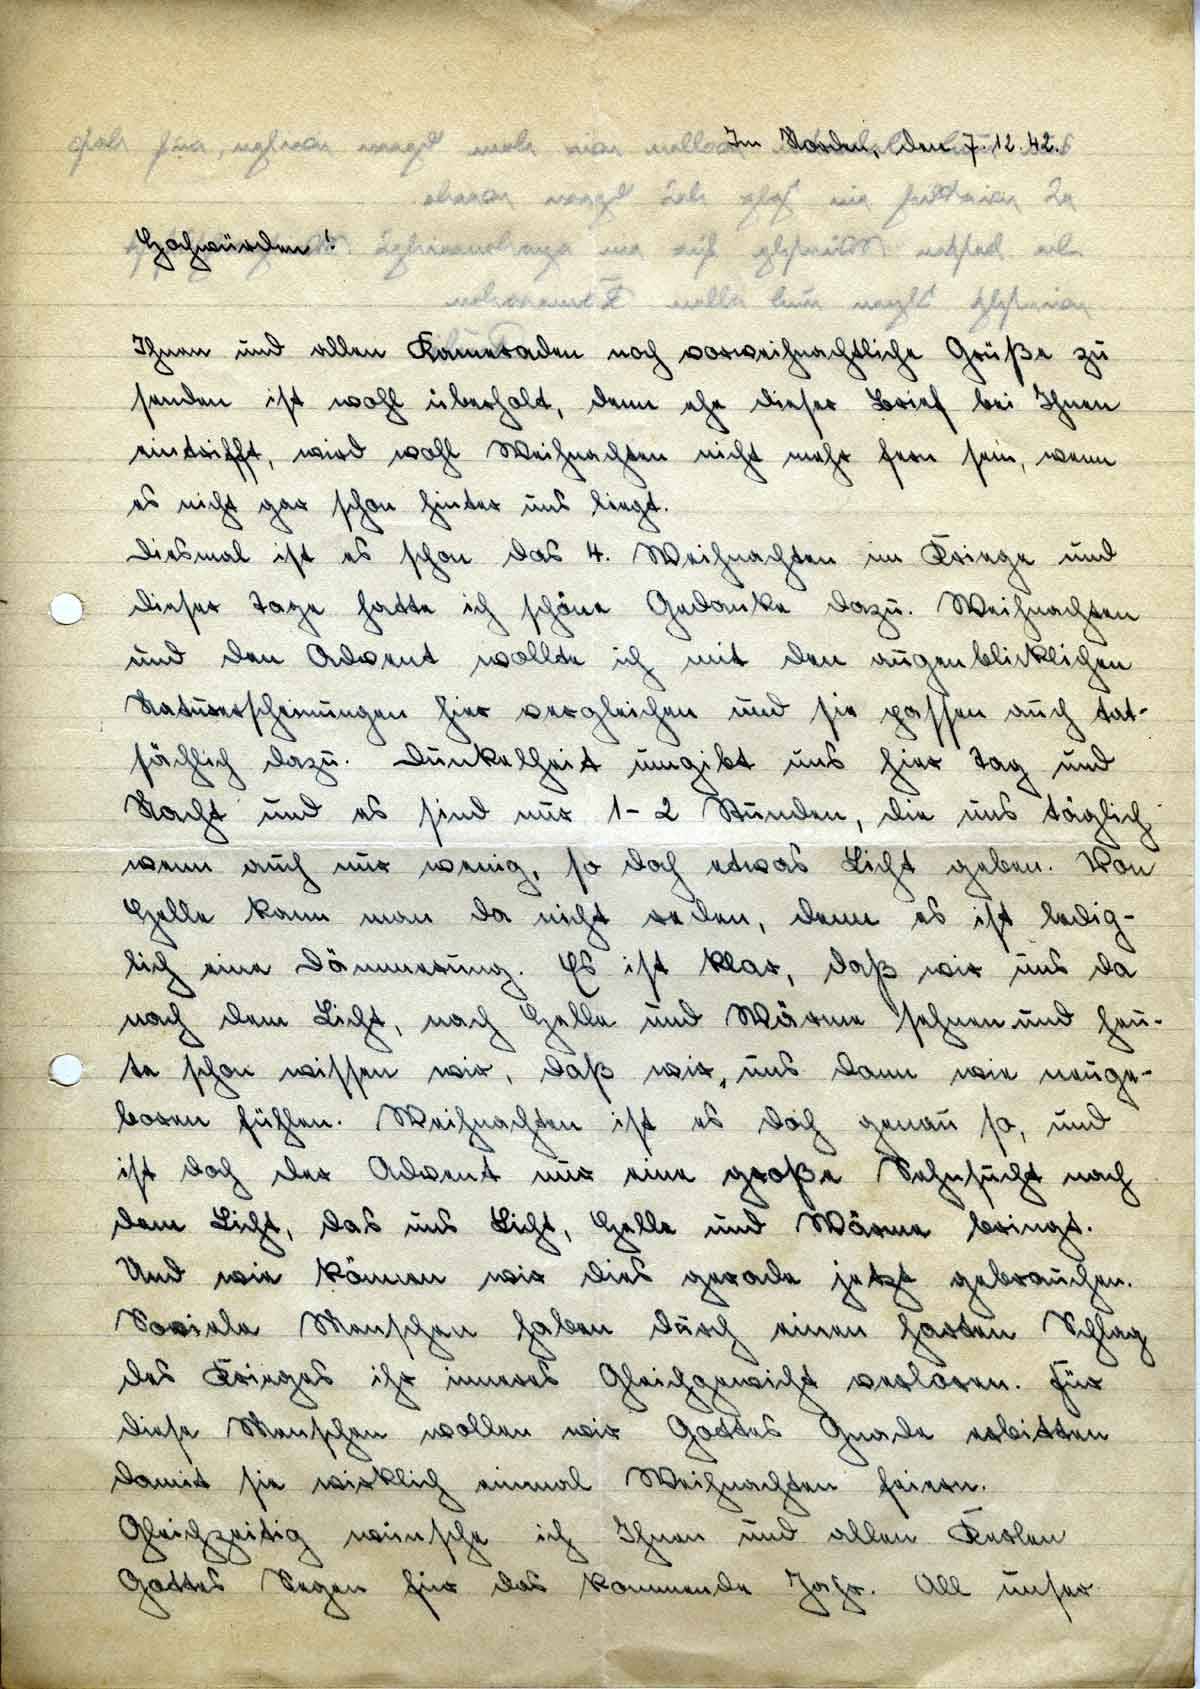 Im Norden, den 7.12.42.
Hochwürden!
Ihnen und allen Kameraden noch vorweihnachtliche Grüße zu
senden ist wohl überholt, denn ehe dieser Brief bei Ihnen
eintrifft, wird wohl Weihnachten nicht mehr fern sein, wenn
es nicht gar schon hinter uns liegt.
Diesmal ist es schon das 4. Weihnachten im Kriege und
dieser Tage hatte ich schöne Gedanke dazu. Weihnachten
und den Advent wollte ich mit den augenblicklichen
Naturerscheinungen hier vergleichen und sie passen auch tat-
sächlich dazu. Dunkelheit umgibt uns hier Tag und
Nacht und es sind nur 1-2 Stunden, die uns täglich
wenn auch nur wenig, so doch etwas Licht geben. Von
Helle kann man da nicht reden, denn es ist ledig-
lich eine Dämmerung. Es ist klar, daß wir uns da
nach dem Licht, nach Helle und Wärme sehnen und heu-
te schon wissen wir, daß wir, uns dann wie neuge-
boren fühlen. Weihnachten ist es doch genau so, und
ist doch der Advent nur eine große Sehnsucht nach
dem Licht, das uns Licht, Helle und Wärme bringt.
Und wie können wir dies gerade jetzt gebrauchen.
Soviele Menschen haben durch einen harten Schlag
des Krieges ihr inneres Gleichgewicht verloren. Für
diese Menschen wollen wir Gottes Gnade erbitten
damit sie wirklich einmal Weihnachten feiern.
Gleichzeitig wünsche ich Ihnen und allen Kerlen
Gottes Segen für das kommende Jahr. All unser